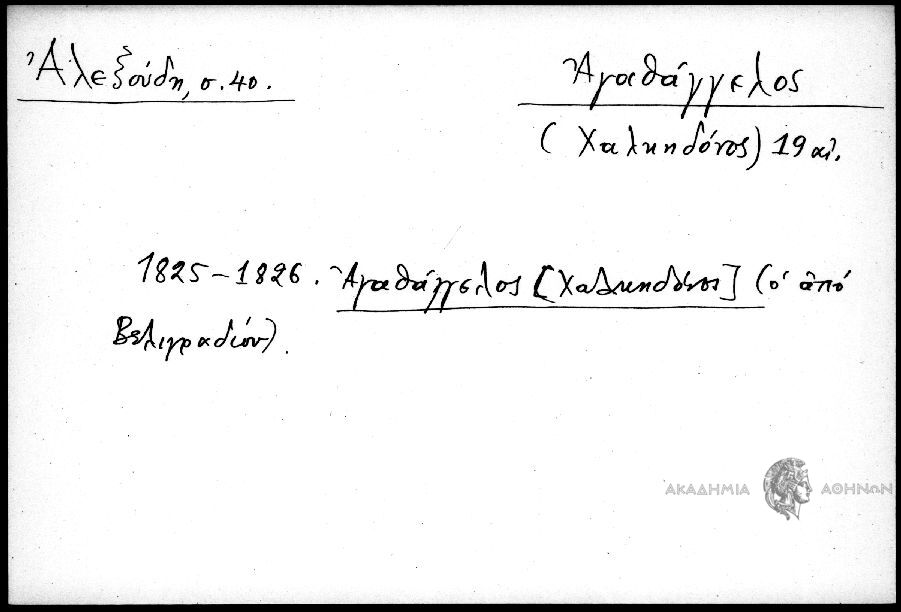 Ἀλεξούδη, σ. 40.
Ἀγαθάγγελος
(Χαλκηδόνος) 19 αἰ.
1825-1826. Ἀγαθάγγελος [Χαλκηδόνος] (ὁ ἀπό
Βελιγραδίου).
ΑΚΑΔΗΜΙΑ ΑΘΗΝΩΝ